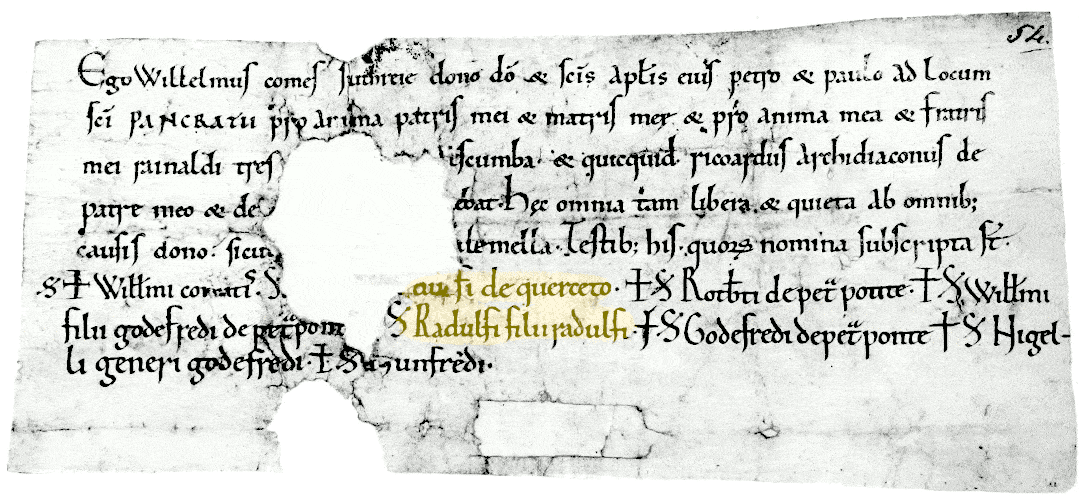 54.
Ego Willelmus comes suthreie dono dō & scīs aptīs eius petro & paulo ad locum
scī PANCRATII pro anima patris mei & matris meę & pro anima mea & fratris
mei rainaldi tres iscumba. & quicquid ricoardus archidiaconus de
patre meo & de ebat. hęc omnia tam libera & quieta ab omnib;
causis dono. sicut lemella. Testib; his. quorꝝ nomina subscripta st̄.
.S ✝ Willmi comiti. S. de querceto. ✝ S Rotbti de pet ponte. ✝ S Willmi
filii godefredi de pet pont S Radulfi filii radulfi. ✝ S Godefredi de pet ponte ✝ S Higel-
li generi godefredi. ✝ S unfredi.